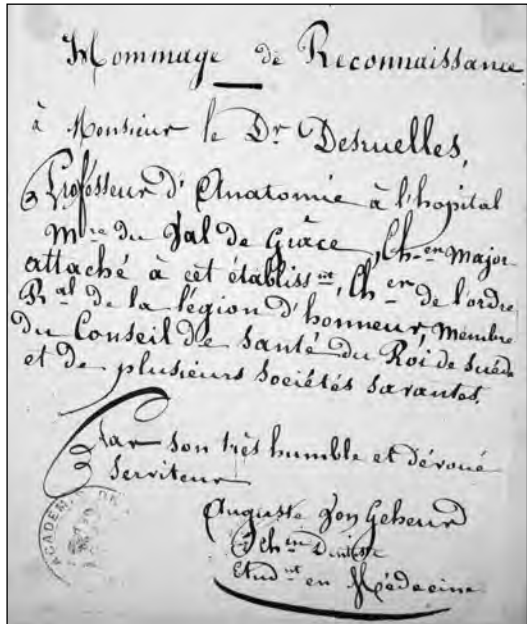 Hommage de Reconnaissance
à Monsieur le Dr Desruelles,
Professeur d'Anatomie à l'hopital
Mre du Val de Grâce, Ch-en Major
attaché à cet établisst, Cher de l'ordre
Ral de la légion d'honneur, Membre
du Conseil de Santé du Roi de Suéde
et de plusieurs Sociétés Savantes.
Par son très humble et dévoué
Serviteur
Auguste
Chin Dentiste
Etudnt en Médecine
ACADEM